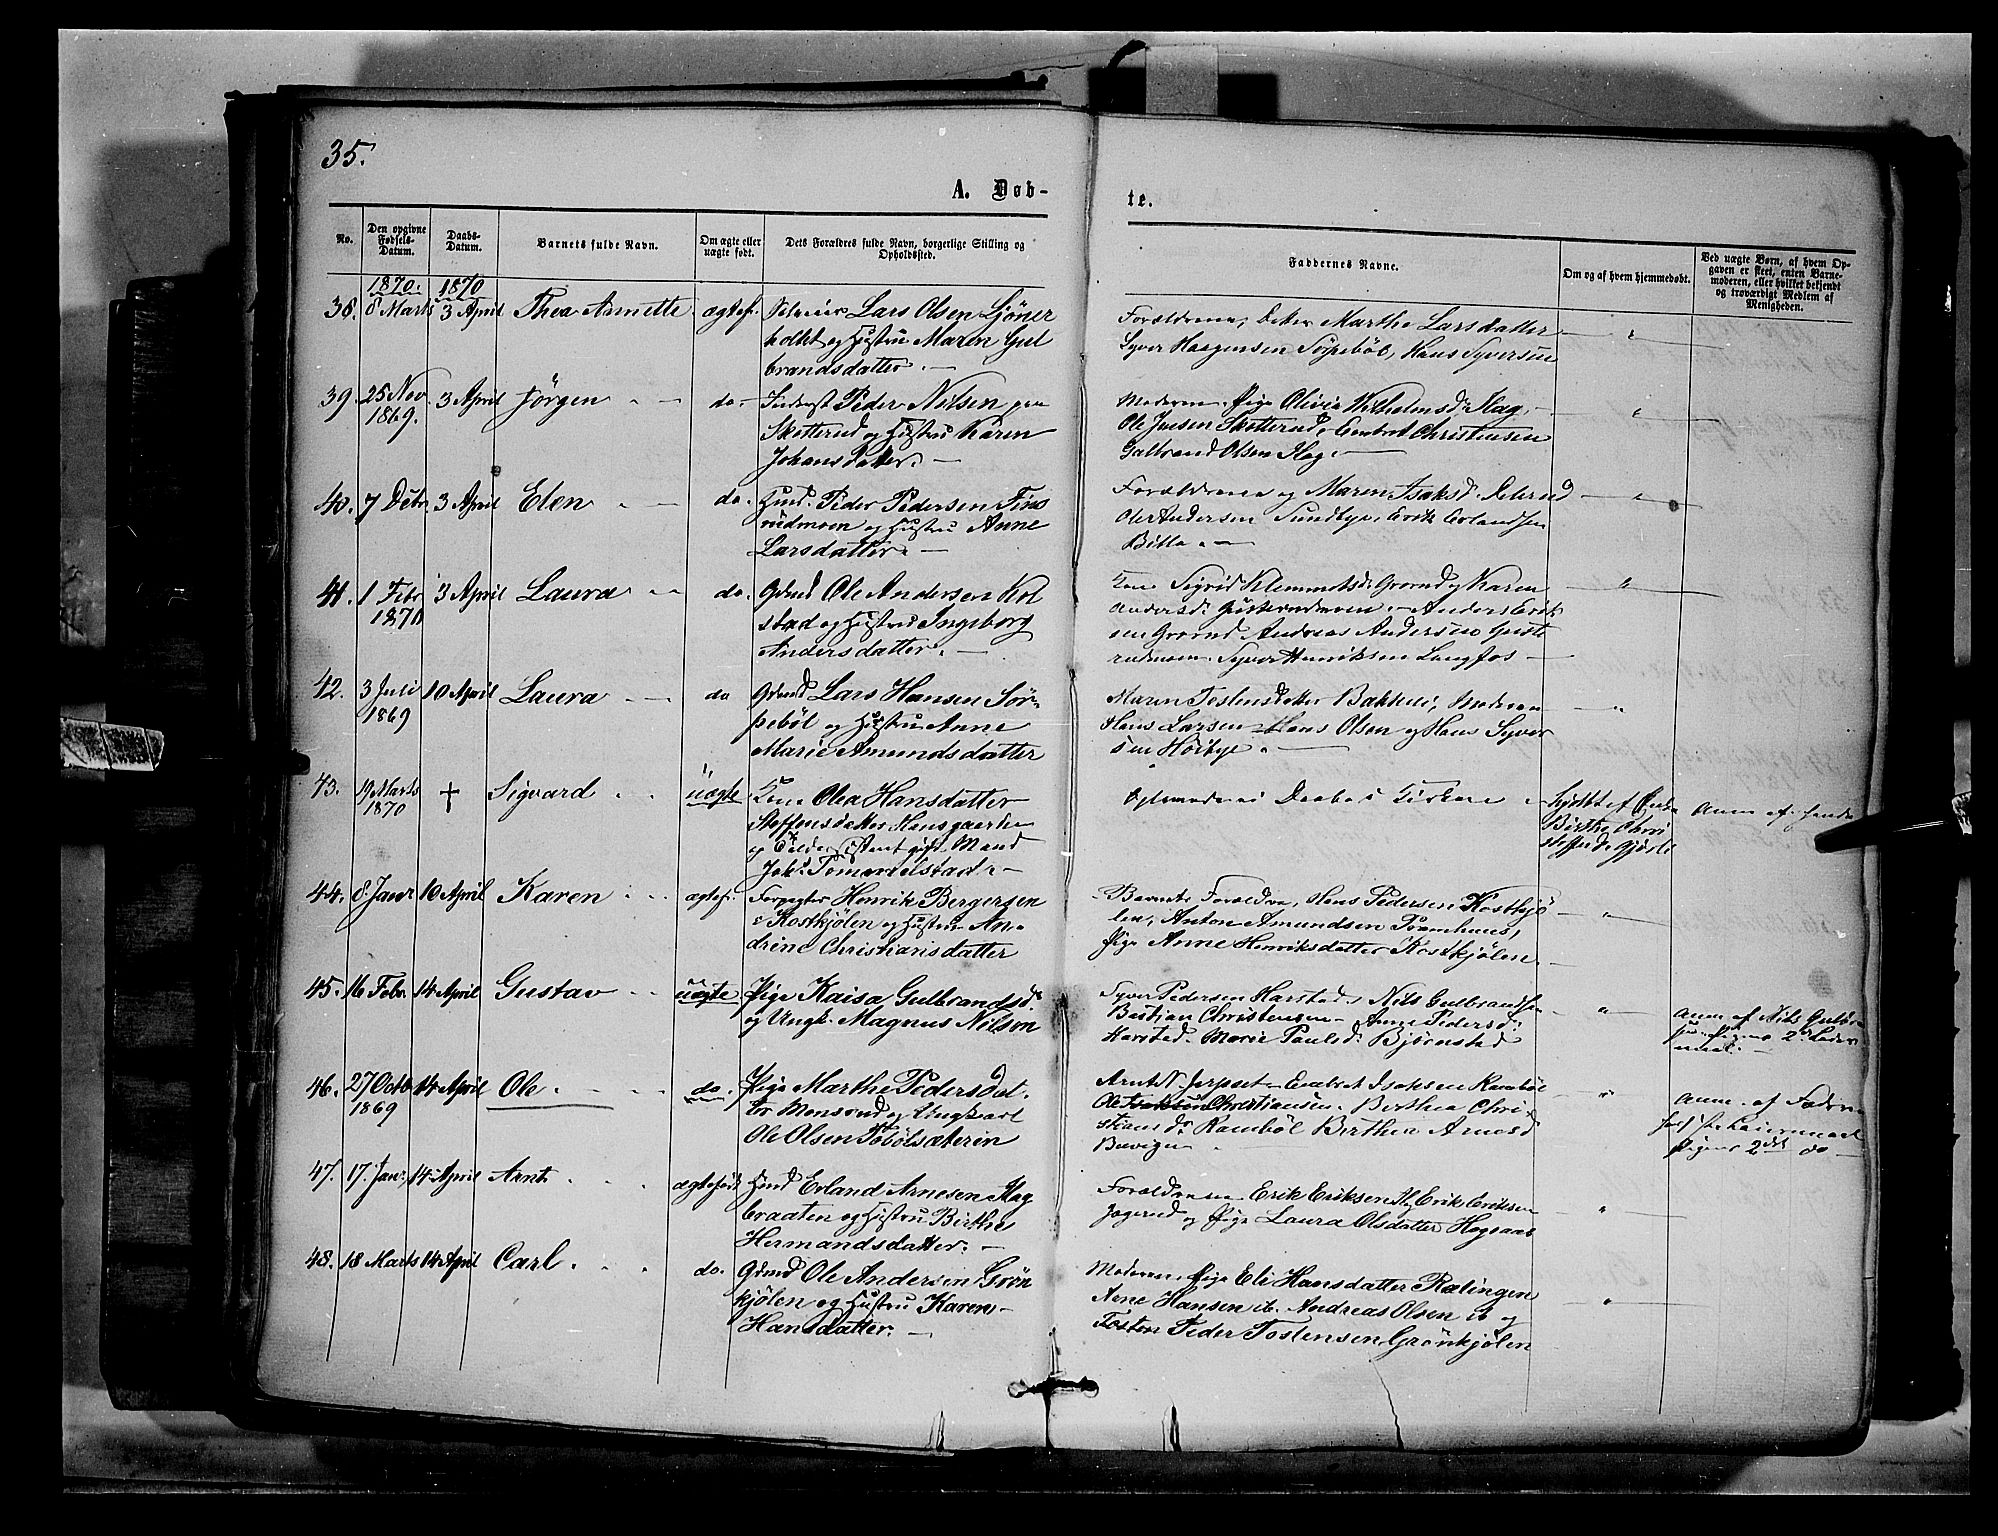 35.
A. Døb-
te.
No.
Den opgivne Fødsels-Datum.
Daabs-Datum.
Barnets fulde Navn.
Om ægte eller uægte født.
Dets Forældres fulde Navn, borgerlige Stilling og Opholdssted.
Faddernes Navne.
Om og af hvem hjemmedøbt.
Ved uægte Børn, af hvem Opgaven er skeet, enten Barnemoderen, eller hvilket bekjendt og troværdigt Medlem af Menigheden.
1870. 1870
38. 8 Marts 3 April Thea Annette ægtef. Lars Olsen Ljöner
holtet og Hustru Maren Gul
brandsdatter. —
Forældrene, Marthe Larsdatter
Syver Haagensen Sörpeböl, Hans Syversen
39. 25 Nov 3 April Jörgen do. Inderst Peder Nilsen paa
1869. Skotterud og Hustru Karen
Johansdatter. —
Moderen, Pige Olivia Wilhelmsd. Hag,
Ole Jensen Skotterud, Christensen
Gulbrand Olsen Hag. —
40. 7 Decbr 3 April Elen do. Husd. Peder Pedersen Fins
rudmoen og Hustru Anne
Larsdatter. —
Forældrene og Maren Isaksd.
Ole Andersen Sundbye, Erik Erlandsen
41. 1 Febr 3 April Laura do. Grmd Ole Andersen Kol
1870 stad og Hustru Ingeborg
Andersdatter. —
Kone Sigrid Klemmetsd. Grorud og Karen
Andersd. Anders Erik
sen Grorud Andreas Andersen
Syver Henriksen Langfos —
42. 3 Juli 10 April Laura do Grmd Lars Hansen Sör-
1869 peböl og Hustru Anne
Marie Amundsdatter
Maren Moderen
Hans Larsen Hans Olsen og Hans Syver
sen Höibye. —
43. 19 Marts † Sigvard uægte Kone Olea Hansdatter
1870 Steffensdatter
gift Mand
Joh.
Daab i Kirken
Birthe Chri
Anm. af
44. 8 Janr 10 April Karen ægtef. Forpagter Henrik Bergersen
Rostkjölen og Hustru An-
drine Christiansdatter
Barnets Forældre, Hans Pedersen Rostkjö
len, Anton Amundsen
Pige Anne Henriksdatter Rostkjölen.
45. 16 Febr. 14 April Gustav uægte Pige Kaisa Gulbrandsd.
og Ungk. Magnus Nilson
Syver Pedersen Harstad, Nils Gulbrandsen
Bastian Christensen — Anne Pedersd.
Harstad. Marie Paulsd. Björnstad
Anm. af Nils Gulbr.
Pigens 2d Leier
maal. —
46. 27 Octb 14 April Ole do. Pige Marthe Pedersdat
1869 ter Monsrud og Ungkarl
Ole Olsen Töbölsæteren
Arnt N. Isaksen Ramböl
Ole Christiansen. Birthea Chri
stiansdr Ramböl Birthea Arnesd
Anm. af Faderen
Leiermaal
Pigens 2det do —
47. 17. Janr, 14 April Arnt ægtefödt Husd Erland Arnesen Hag
braaten og Hustru Birthe
Hermandsdatter. —
Forældrene Erik Eriksen Erik Eriksen
og Pige Laura Olsdatter
48. 18 Marts 14 April Carl. do. Grmd Ole Andersen Grön
kjölen og Hustru Karen
Hansdatter. —
Moderen, Pige Eli Hansdatter Rælingen
Arne Hansen ib. Andreas Olsen ib og
Peder Tostensen Grönkjölen